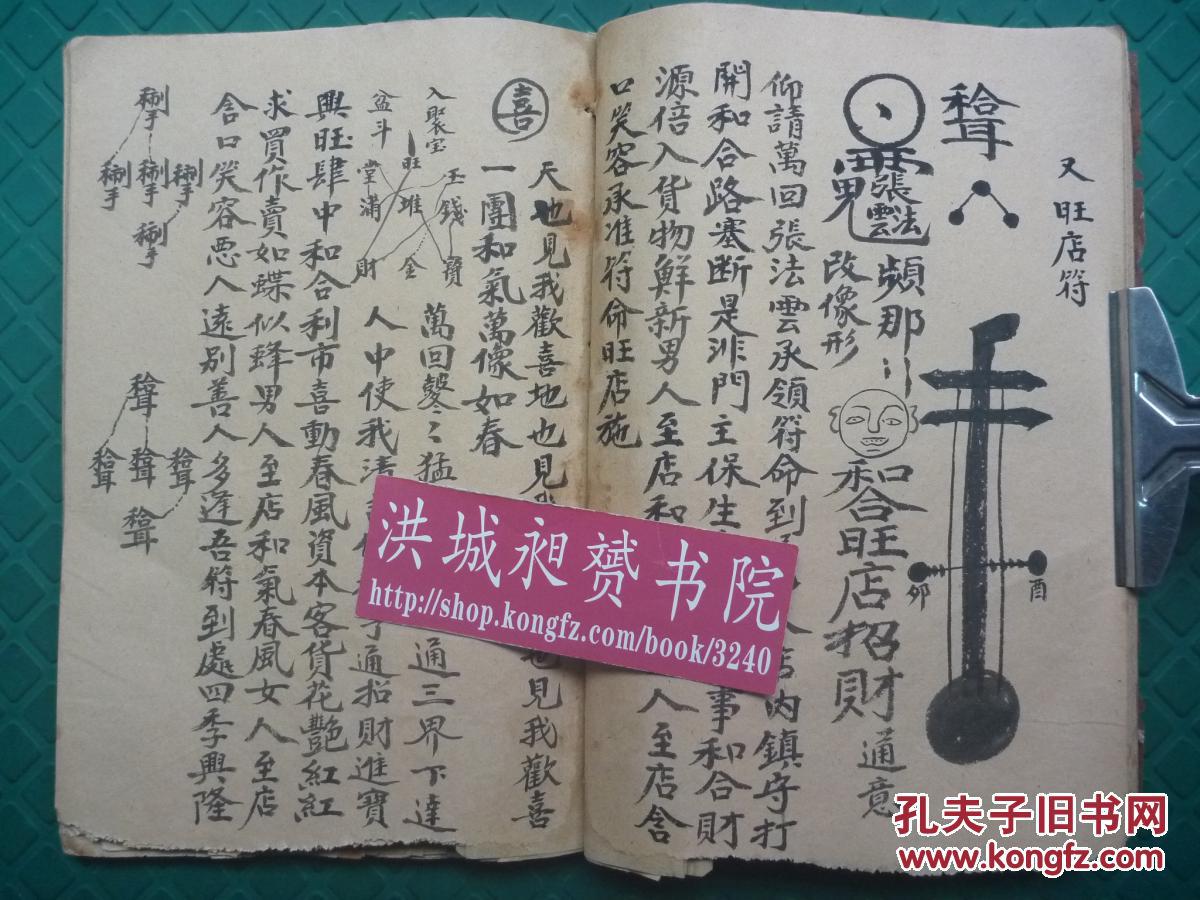 又旺店符
卯
酉
張法雲
頻那
改像形
和合旺店招財通意
仰請萬回張法雲承領符命到
店內鎮守打
開和合路塞断是非門主保生
事和合財
源倍入貨物鮮新男人至店和
人至店含
口笑容承准符命旺店施
喜
天也見我歡喜地也見我
也見我歡喜
一團和氣萬像如春
入聚宝
盆斗
旺
玉錢
堂滿
堆
財
金
寶
萬回
猛
通三界下達
人中使我
通招財進寶
興旺肆中和合利市喜動春風資本客貨花艷紅紅
求買作賣如蝶似蜂男人至店和氣春風女人至店
含口笑容惡人遠别善人多逢吾符到處四季興隆
洪城昶赟书院
http://shop.kongfz.com/book/3240
孔夫子旧书网
www.kongfz.com